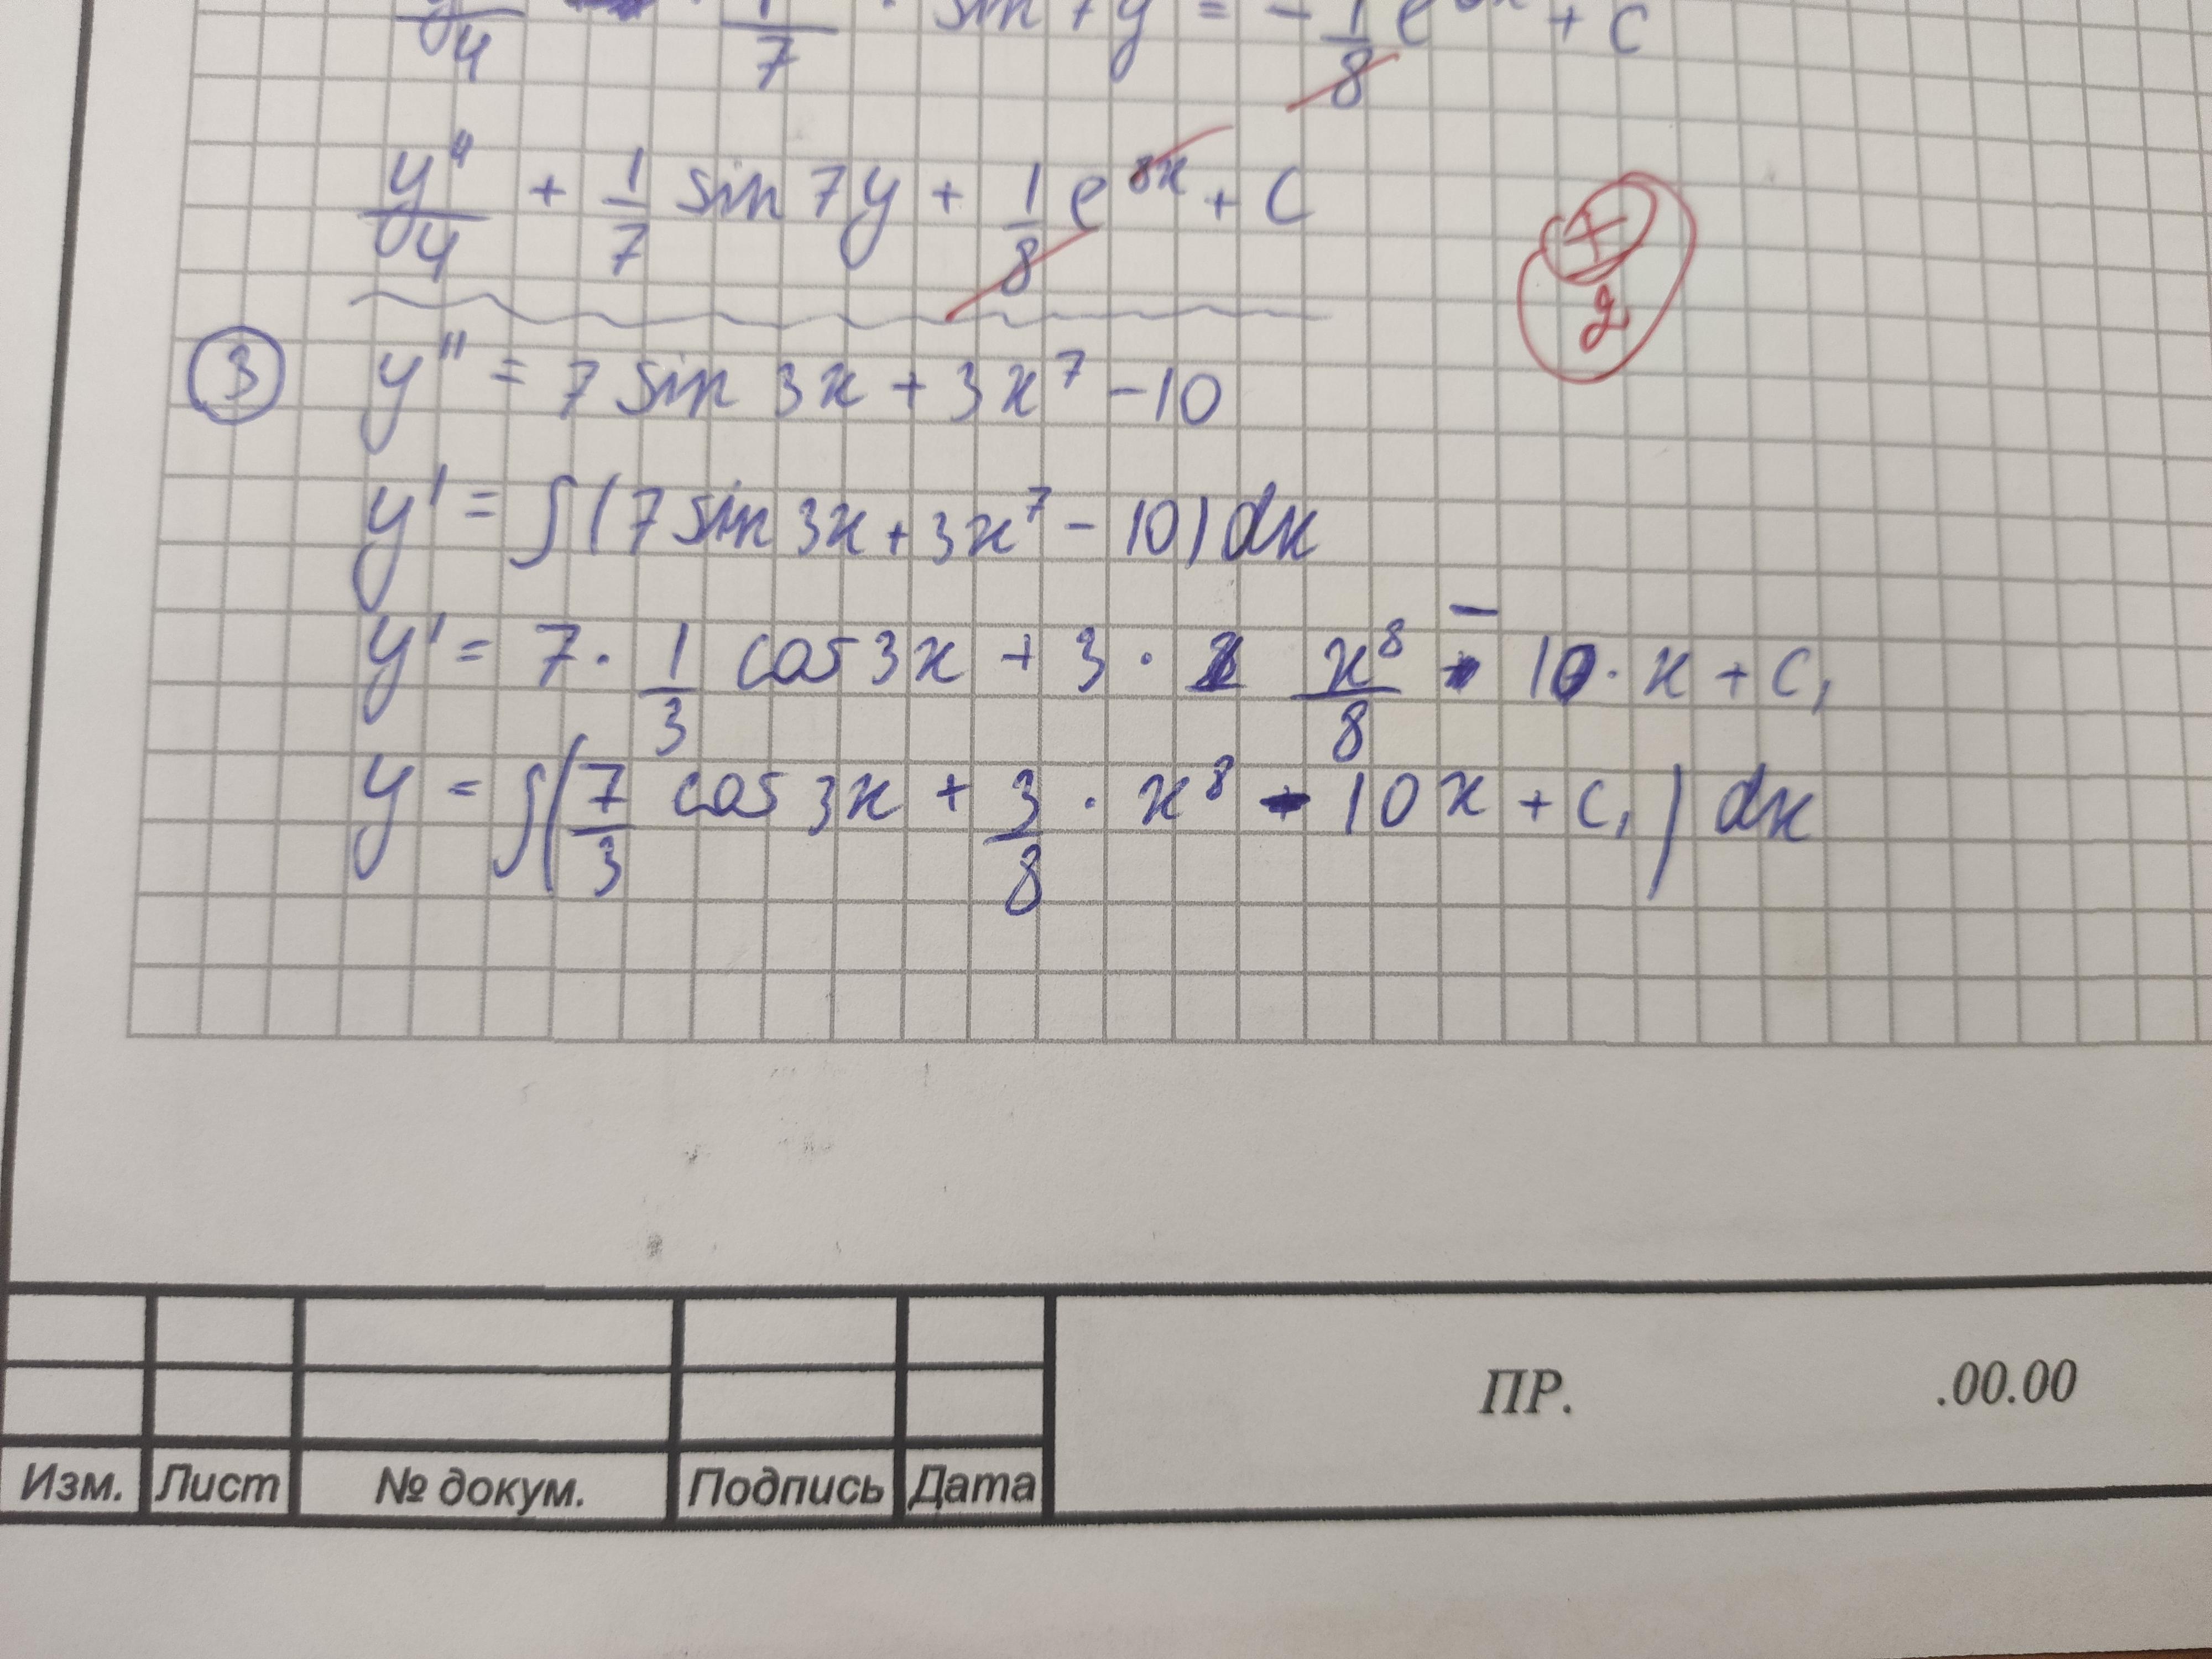 y⁴/4 · 1/7 · sin 7y = - 1/8 e + C
y⁴/4 + 1/7 sin 7y + 1/8 e⁸ˣ + C
+
2
③ y'' = 7 sin 3x + 3x⁷ - 10
y' = ∫(7 sin 3x + 3x⁷ - 10) dx
y' = 7 · 1/3 cos 3x + 3 · x⁸/8 - 10 · x + C₁
y = ∫(7/3 cos 3x + 3/8 · x⁸ - 10x + C₁) dx
ПР. .00.00
Изм. Лист № докум. Подпись Дата